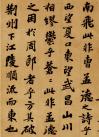 南飛此非曹孟德之詩乎
西望夏口東望武昌山川
相繆鬱乎蒼蒼此非孟德之
困於周郎者乎方其破
荊州下江陵順流而東也